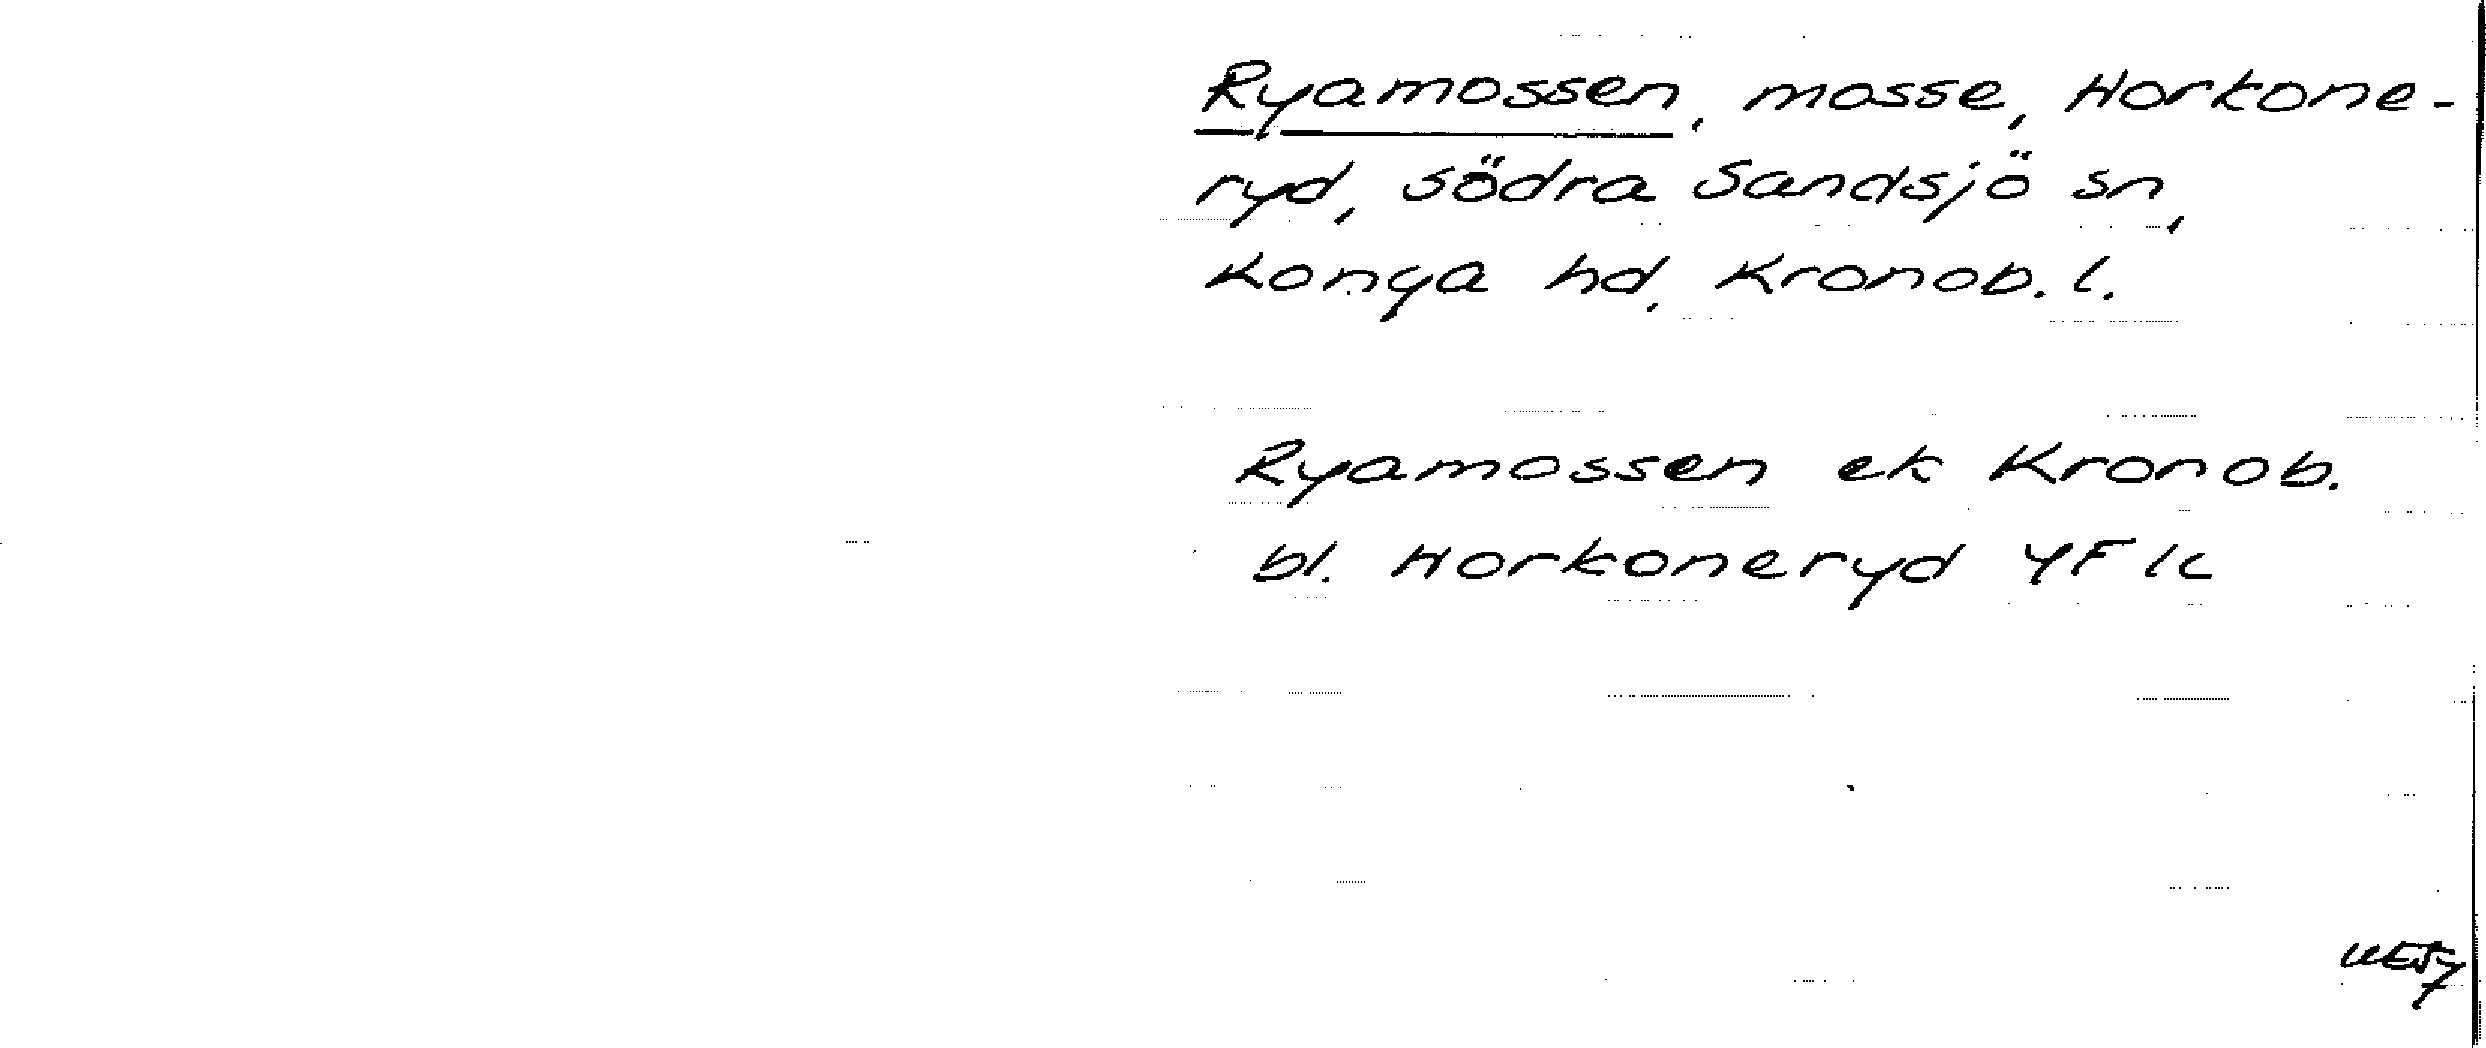 Ryamossen, mosse, Horkone-
ryd, södra Sandsjö sn,
Konga hd, Kronob. l.
Ryamossen ek Kronob.
bl. Horkoneryd 4F 1c